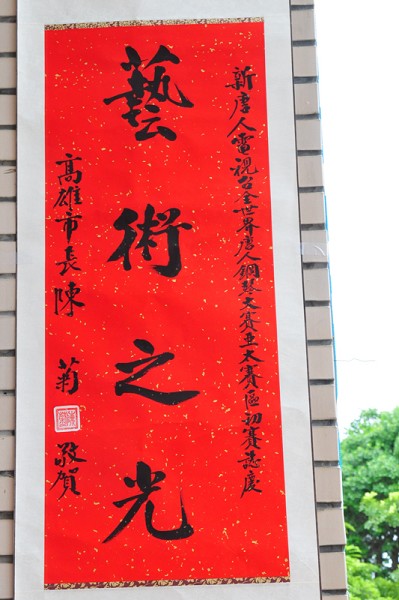 新唐人電視台全世界唐人鋼琴大賽亞太賽區初賽誌慶
藝術之光
高雄市長陳菊 敬賀